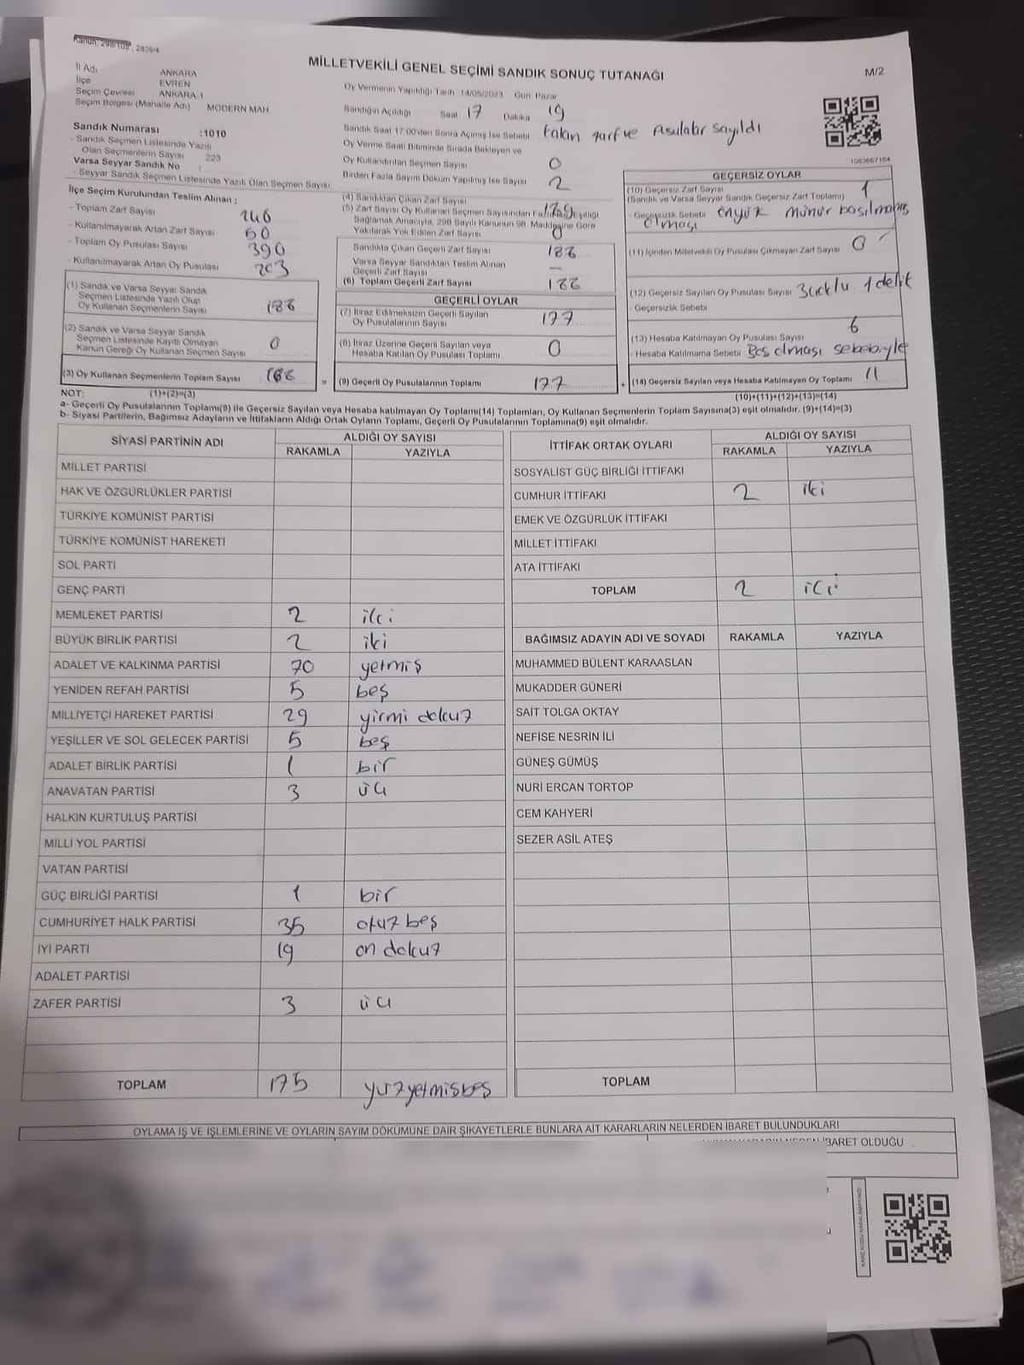 Kanun: 298/105, 2839/4
MİLLETVEKİLİ GENEL SEÇİMİ SANDIK SONUÇ TUTANAĞI
M/2
İl Adı ANKARA
İlçe EVREN
Seçim Çevresi ANKARA 1
Seçim Bölgesi (Mahalle Adı) MODERN MAH
Sandık Numarası :1010
- Sandık Seçmen Listesinde Yazılı
Olan Seçmenlerin Sayısı 223
Varsa Seyyar Sandık No :
- Seyyar Sandık Seçmen Listesinde Yazılı Olan Seçmen Sayısı
Oy Vermenin Yapıldığı Tarih 14/05/2023 Gün Pazar
Sandığın Açıldığı Saat 17 Dakika 19
Sandık Saat 17:00'den Sonra Açılmış İse Sebebi zarf ve Pusulalar sayıldı
Oy Verme Saati Bitiminde Sırada Bekleyen ve
Oy Kullandırılan Seçmen Sayısı 0
Birden Fazla Sayım Döküm Yapılmış İse Sayısı 2
1063667164
İlçe Seçim Kurulundan Teslim Alınan :
- Toplam Zarf Sayısı 246
- Kullanılmayarak Artan Zarf Sayısı 60
- Toplam Oy Pusulası Sayısı 390
- Kullanılmayarak Artan Oy Pusulası 203
(1) Sandık ve Varsa Seyyar Sandık
Seçmen Listesinde Yazılı Olup
Oy Kullanan Seçmenlerin Sayısı 188
(2) Sandık ve Varsa Seyyar Sandık
Seçmen Listesinde Kayıtlı Olmayan
Kanun Gereği Oy Kullanan Seçmen Sayısı 0
(3) Oy Kullanan Seçmenlerin Toplam Sayısı 188
(4) Sandıktan Çıkan Zarf Sayısı
(5) Zarf Sayısı Oy Kullanan Seçmen Sayısından Fazla İse, Eşitliği
Sağlamak Amacıyla, 298 Sayılı Kanunun 98. Maddesine Göre
Yakılarak Yok Edilen Zarf Sayısı 0
Sandıkta Çıkan Geçerli Zarf Sayısı 188
Varsa Seyyar Sandıktan Teslim Alınan
Geçerli Zarf Sayısı —
(6) Toplam Geçerli Zarf Sayısı 188
GEÇERLİ OYLAR
(7) İtiraz Edilmeksizin Geçerli Sayılan
Oy Pusulalarının Sayısı 177
(8) İtiraz Üzerine Geçerli Sayılan veya
Hesaba Katılan Oy Pusulası Toplamı 0
= (9) Geçerli Oy Pusulalarının Toplamı 177
GEÇERSİZ OYLAR
(10) Geçersiz Zarf Sayısı
(Sandık ve Varsa Seyyar Sandık Geçersiz Zarf Toplamı) 1
- Geçersizlik Sebebi mühür basılmamış
olması
(11) İçinden Milletvekili Oy Pusulası Çıkmayan Zarf Sayısı 0
(12) Geçersiz Sayılan Oy Pusulası Sayısı 1 delik
- Geçersizlik Sebebi
(13) Hesaba Katılmayan Oy Pusulası Sayısı 6
- Hesaba Katılmama Sebebi Boş olması sebebiyle
+ (14) Geçersiz Sayılan veya Hesaba Katılmayan Oy Toplamı 11
NOT: (1)+(2)=(3) (10)+(11)+(12)+(13)=(14)
a- Geçerli Oy Pusulalarının Toplamı(9) ile Geçersiz Sayılan veya Hesaba katılmayan Oy Toplamı(14) Toplamları, Oy Kullanan Seçmenlerin Toplam Sayısına(3) eşit olmalıdır. (9)+(14)=(3)
b- Siyasi Partilerin, Bağımsız Adayların ve İttifakların Aldığı Ortak Oyların Toplamı, Geçerli Oy Pusulalarının Toplamına(9) eşit olmalıdır.
SİYASİ PARTİNİN ADI ALDIĞI OY SAYISI
RAKAMLA YAZIYLA
MİLLET PARTİSİ
HAK VE ÖZGÜRLÜKLER PARTİSİ
TÜRKİYE KOMÜNİST PARTİSİ
TÜRKİYE KOMÜNİST HAREKETİ
SOL PARTİ
GENÇ PARTİ
MEMLEKET PARTİSİ 2 iki
BÜYÜK BİRLİK PARTİSİ 2 iki
ADALET VE KALKINMA PARTİSİ 70 yetmiş
YENİDEN REFAH PARTİSİ 5 beş
MİLLİYETÇİ HAREKET PARTİSİ 29 yirmi dokuz
YEŞİLLER VE SOL GELECEK PARTİSİ 5 beş
ADALET BİRLİK PARTİSİ 1 bir
ANAVATAN PARTİSİ 3 üç
HALKIN KURTULUŞ PARTİSİ
MİLLİ YOL PARTİSİ
VATAN PARTİSİ
GÜÇ BİRLİĞİ PARTİSİ 1 bir
CUMHURİYET HALK PARTİSİ 35 otuz beş
İYİ PARTİ 19 on dokuz
ADALET PARTİSİ
ZAFER PARTİSİ 3 üç
TOPLAM 175 yüzyetmişbeş
İTTİFAK ORTAK OYLARI ALDIĞI OY SAYISI
RAKAMLA YAZIYLA
SOSYALİST GÜÇ BİRLİĞİ İTTİFAKI
CUMHUR İTTİFAKI 2 iki
EMEK VE ÖZGÜRLÜK İTTİFAKI
MİLLET İTTİFAKI
ATA İTTİFAKI
TOPLAM 2 iki
BAĞIMSIZ ADAYIN ADI VE SOYADI RAKAMLA YAZIYLA
MUHAMMED BÜLENT KARAASLAN
MUKADDER GÜNERİ
SAİT TOLGA OKTAY
NEFİSE NESRİN İLİ
GÜNEŞ GÜMÜŞ
NURİ ERCAN TORTOP
CEM KAHYERİ
SEZER ASİL ATEŞ
TOPLAM
OYLAMA İŞ VE İŞLEMLERİNE VE OYLARIN SAYIM DÖKÜMÜNE DAİR ŞİKAYETLERLE BUNLARA AİT KARARLARIN NELERDEN İBARET BULUNDUKLARI
İBARET OLDUĞU